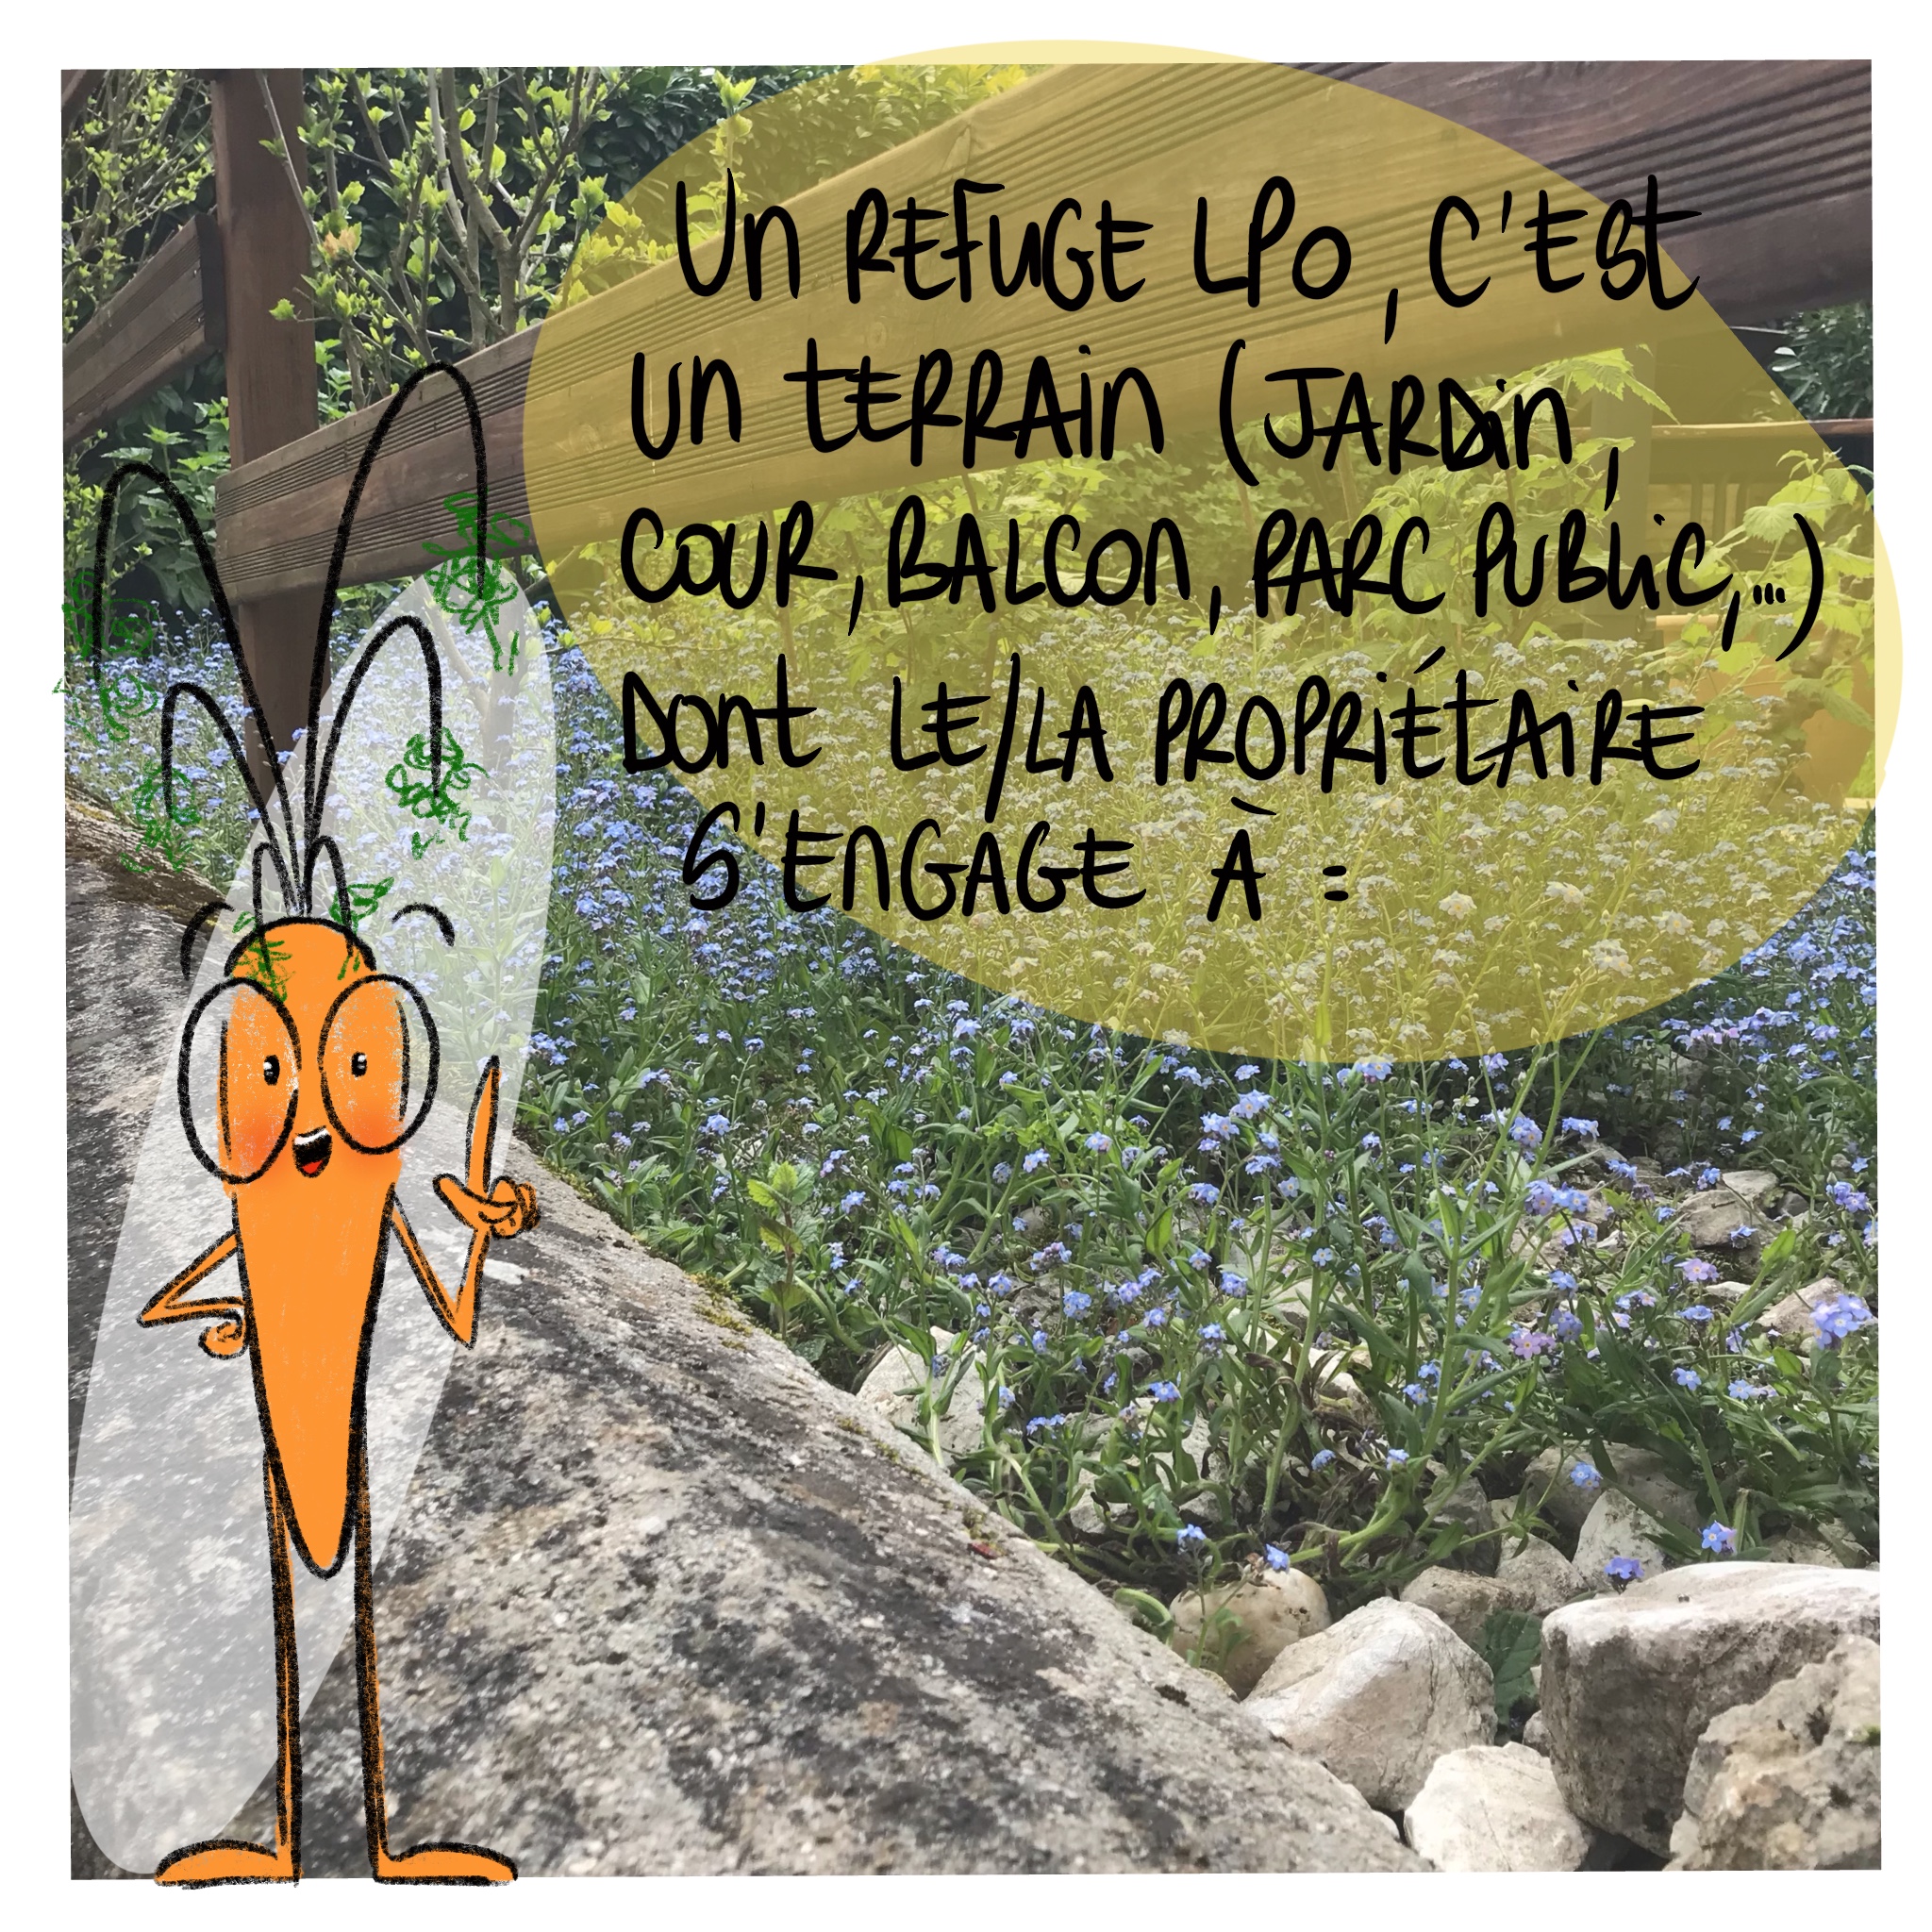 Un REFUGE LPO, C'EST
UN TERRAIN (JARDIN,
COUR, BALCON, PARC PUBLIC,...)
DONT LE/LA PROPRIÉTAIRE
S'ENGAGE À :